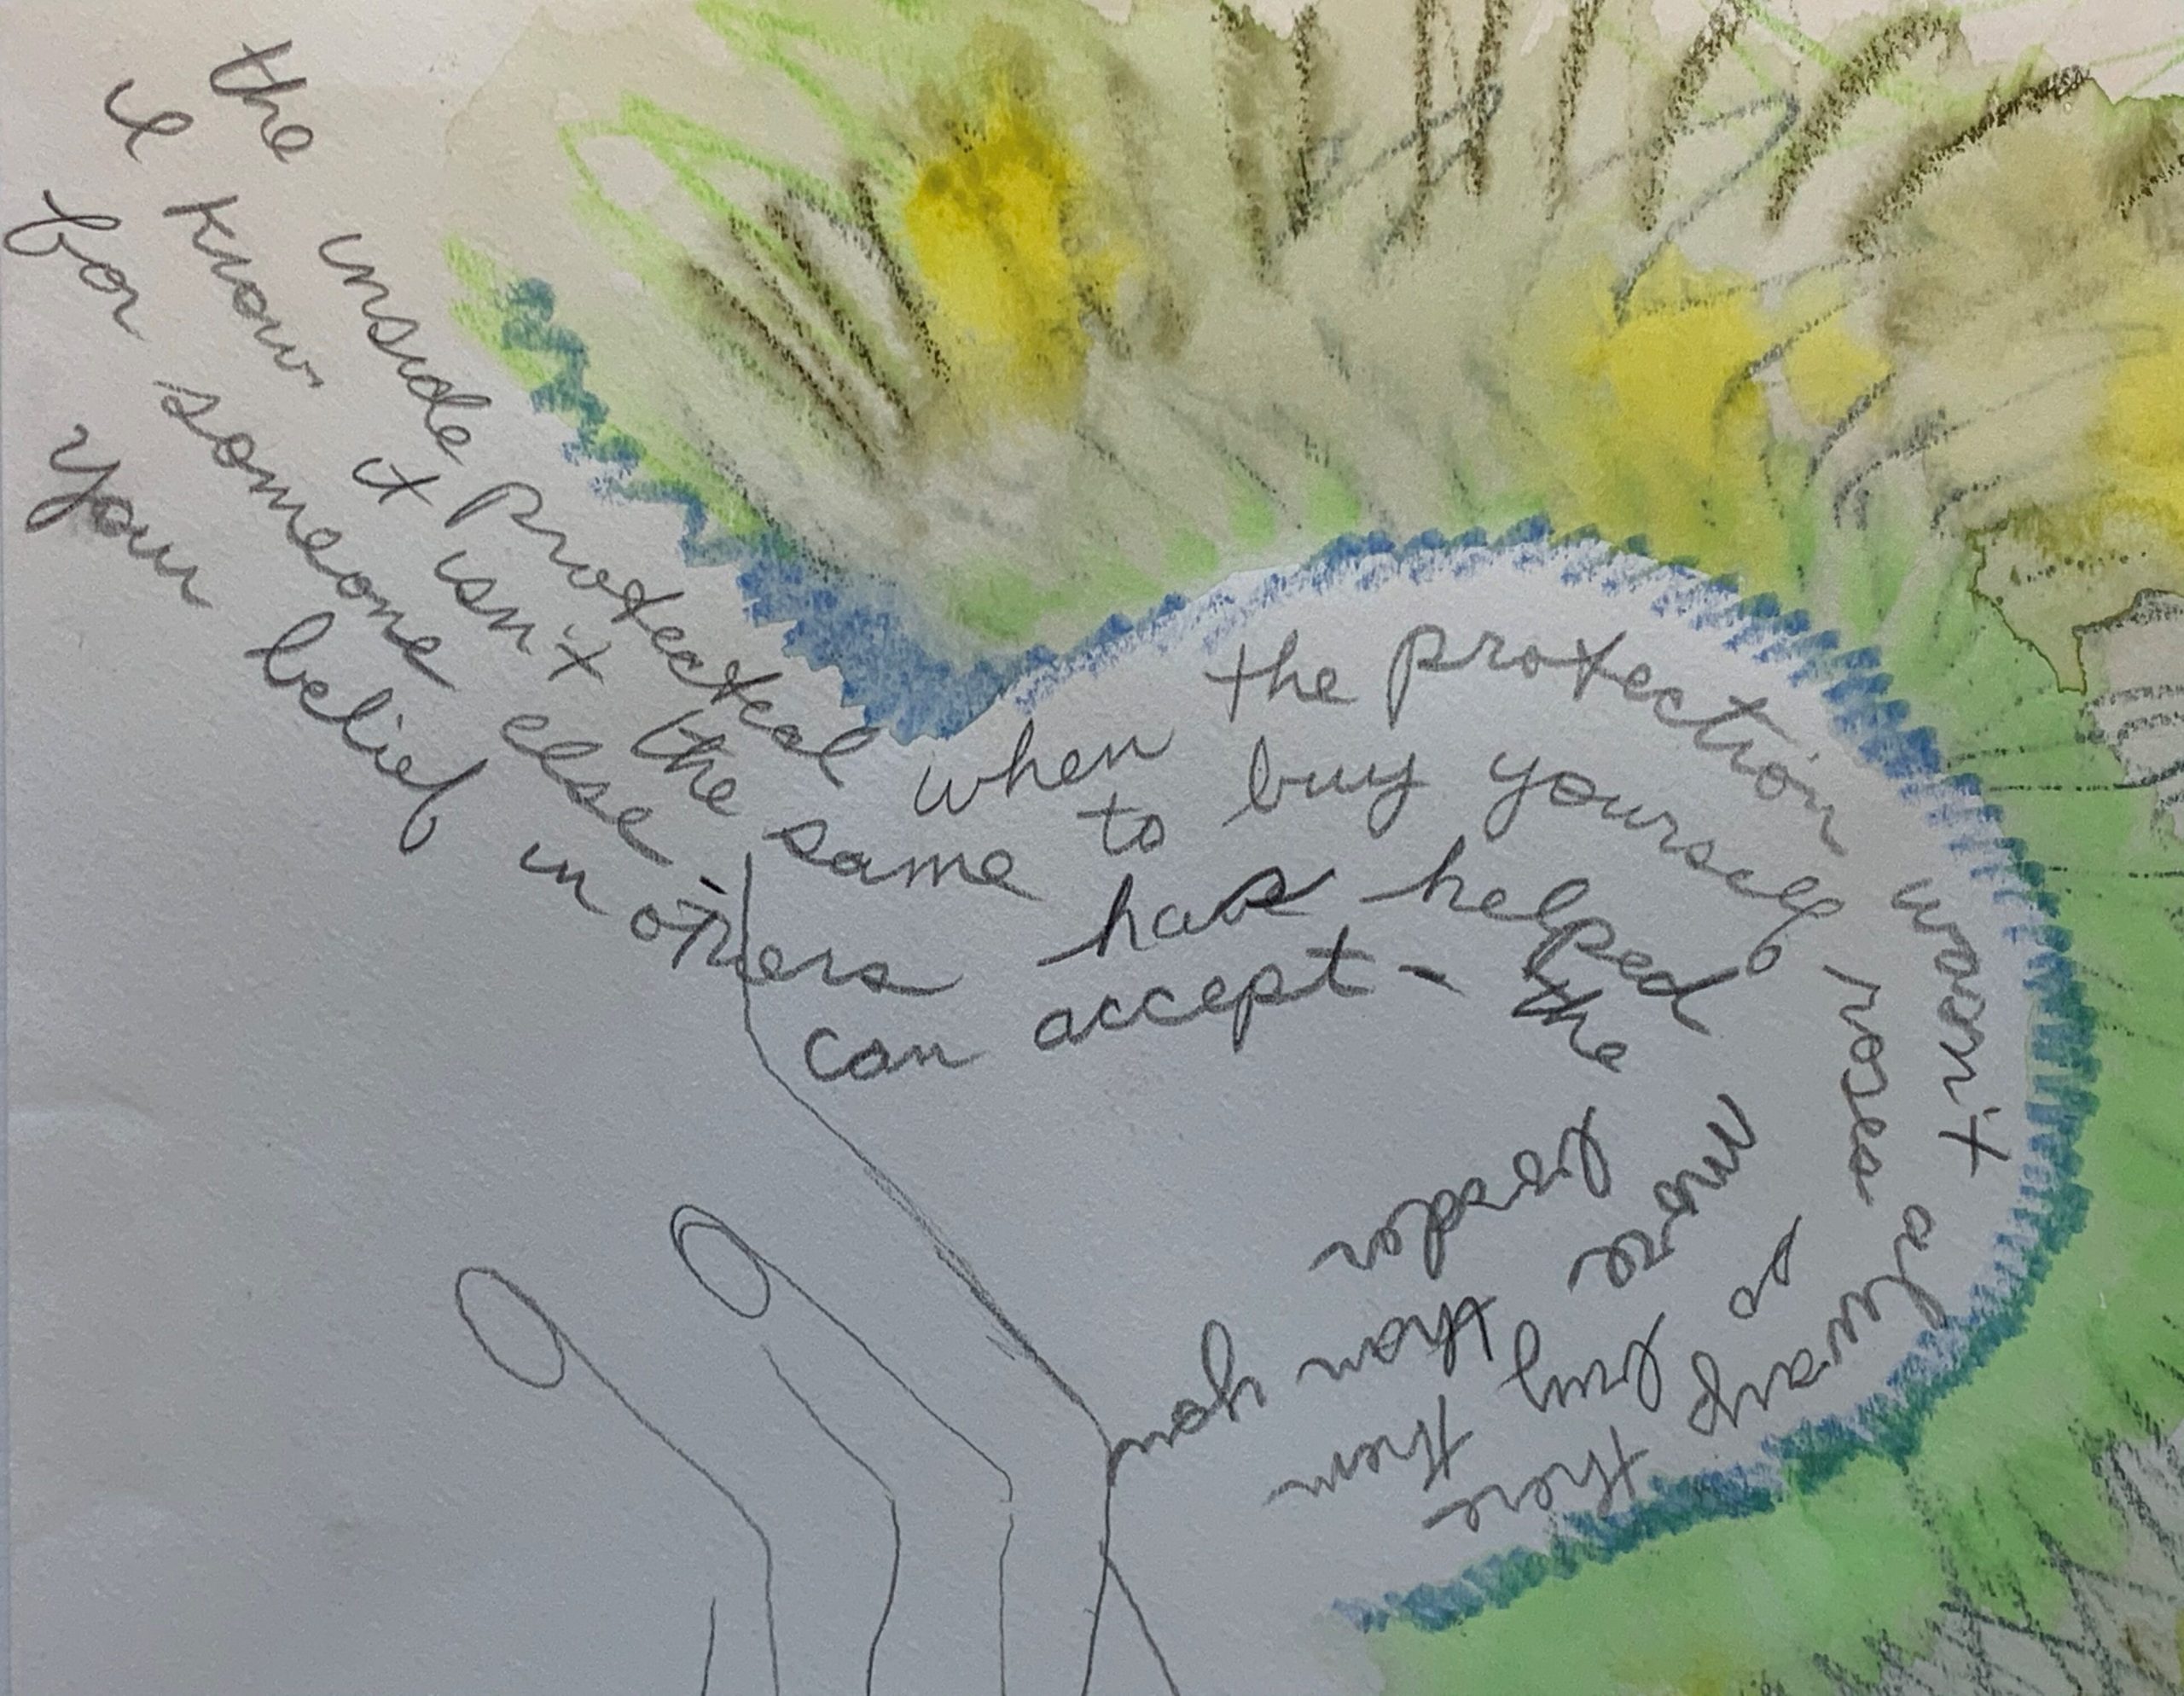 the inside protected when the protection wasn't always there
I know it isn't the same to buy yourself roses so buy them
for someone else - has helped more than you
your belief in others can accept - the leader